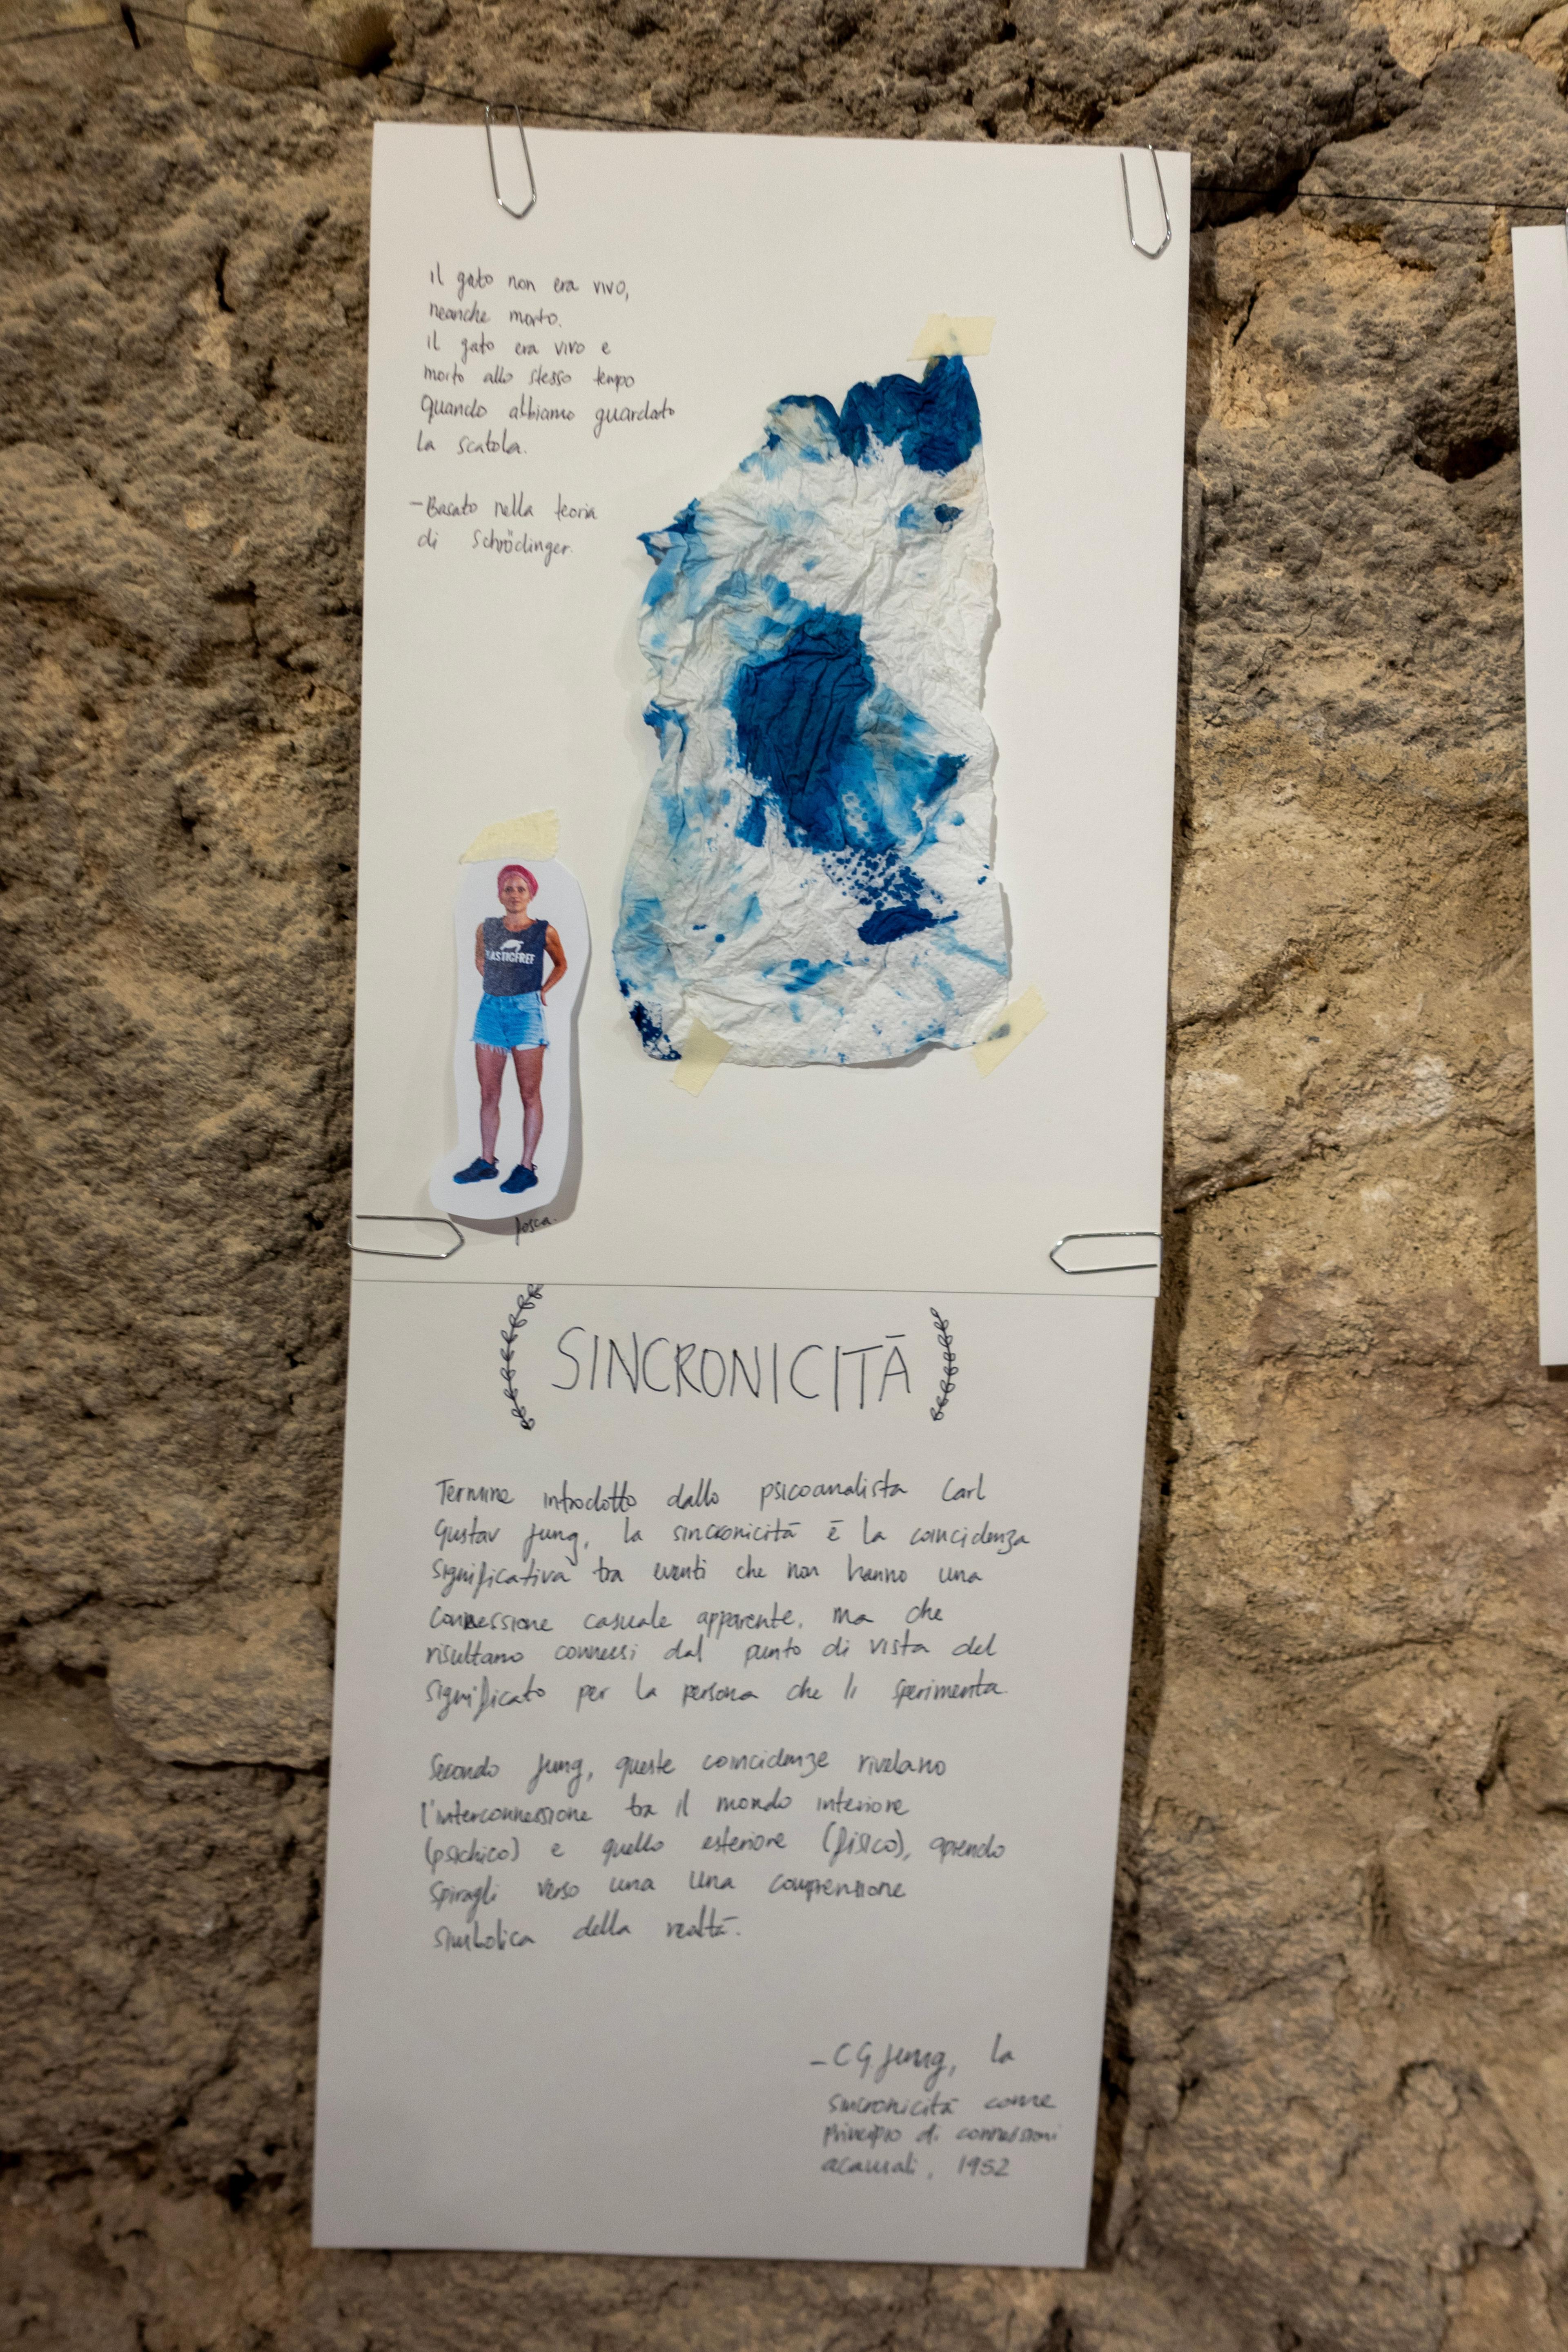 il gato non era vivo,
neanche morto.
il gato era vivo e
morto allo stesso tempo
quando abbiamo guardato
la scatola.
-Basato nella teoria
di Schrödinger.
LASTICFREE
Josca.
SINCRONICITĀ
Termine introdotto dallo psicoanalista Carl
Gustav Jung, la sincronicitā ē la coincidenza
significativa tra eventi che non hanno una
connessione casuale apparente, ma che
risultano connessi dal punto di vista del
significato per la persona che li sperimenta.
Secondo Jung, queste coincidenze rivelano
l'interconnessione tra il mondo interiore
(psichico) e quello esteriore (fisico), aprendo
spiragli verso una una comprensione
simbolica della realtā.
- C G Jung, la
sincronicitā come
principio di connessioni
acausali, 1952